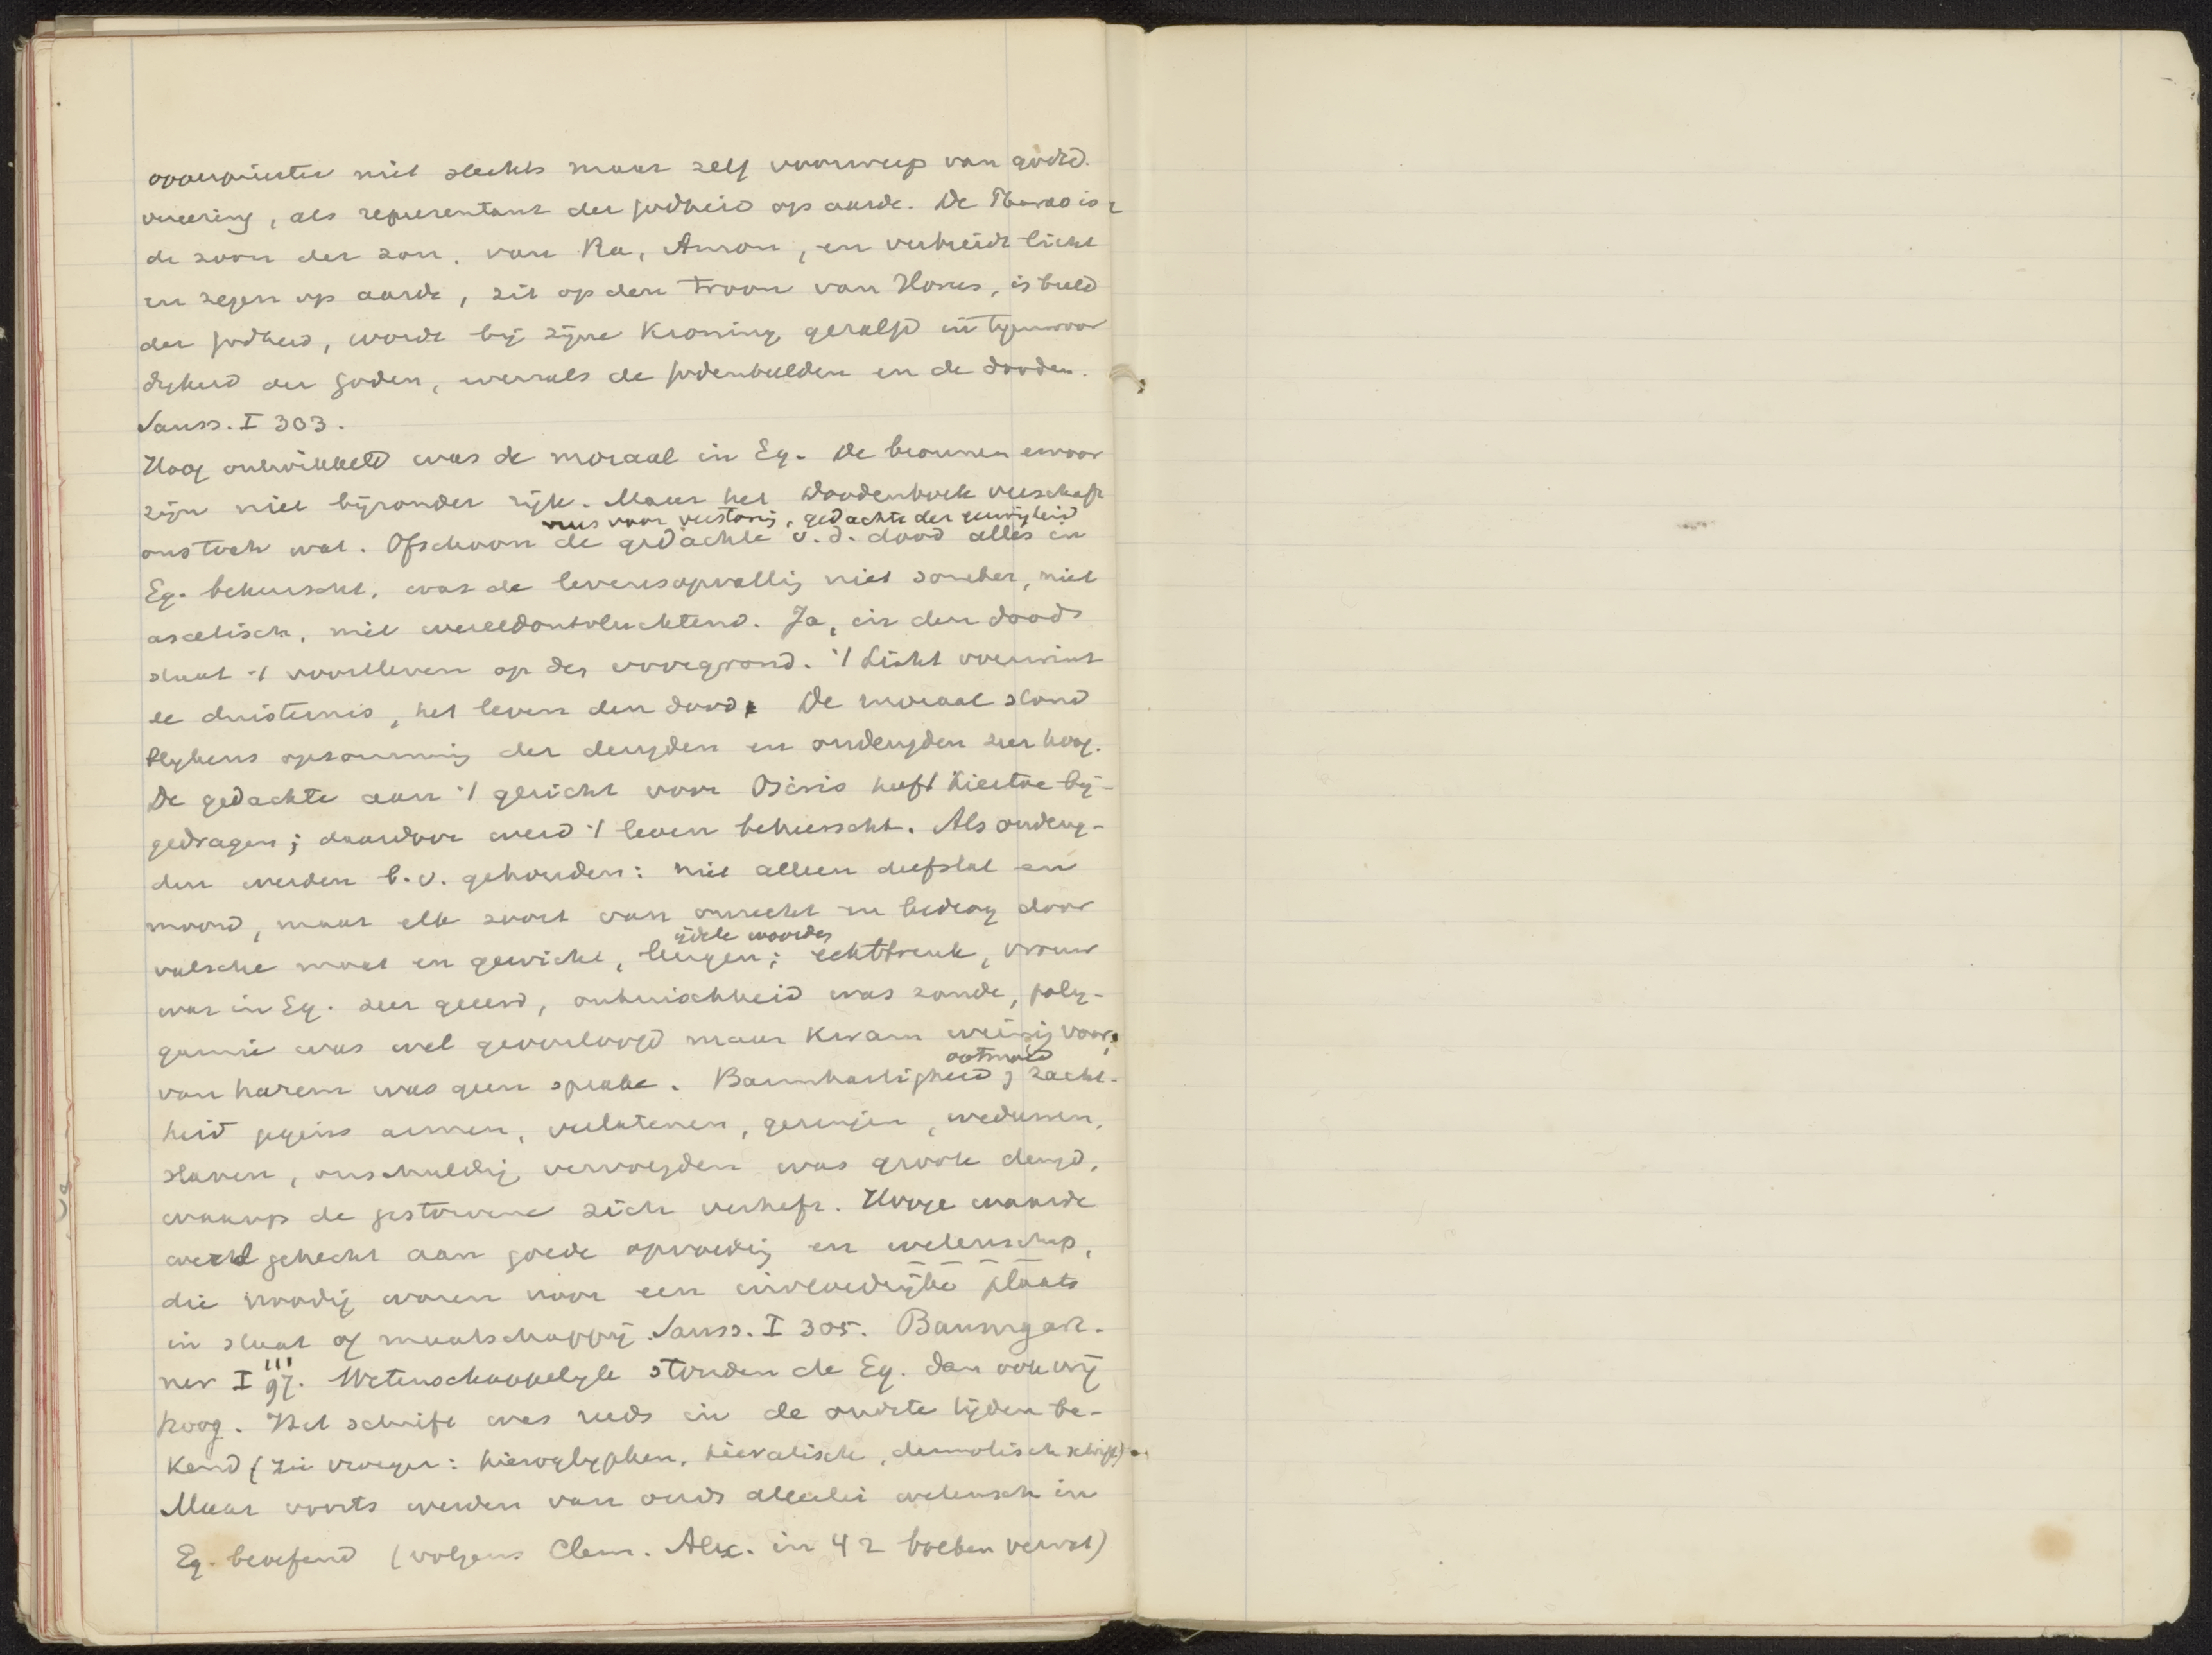 opperpriester niet slechts maar zelf voorwerp van godsd.
vereering, als representant der godheid op aarde. De Pharao is
de zoon der zon, van Ra, Amon, en verbreidt licht
en zegen op aarde, zit op den troon van Horus, is beeld
der godheid, wordt bij zijne Kroning gezalfd in tegenwoor
digheid der goden, evenals de godenbeelden en de dooden.
Sauss. I 303.
Hoog ontwikkeld was de moraal in Eg. De bronnen ervoor
zijn niet bijzonder rijk. Maar het Doodenboek verschaft
vrees voor verstoring, gedachte der eeuwigheid
ons toch wat. Ofschoon de gedachte v.d. dood alles in
Eg. beheerscht, was de levensopvatting niet somber, niet
ascetisch, niet wereldontvluchtend. Ja, in den dood
staat 't voortleven op den voorgrond. 't Licht overwint
de duisternis, het leven den dood. De moraal stond
blijkens opsomming der deugden en ondeugden zeer hoog.
De gedachte aan 't gericht voor Osiris heeft hiertoe bij-
gedragen; daardoor werd 't leven beheerscht. Als ondeug-
den werden b.v. gehouden: niet alleen diefstal en
moord, maar elk soort van onrecht en bedrog door
ijdele woorden
valsche maat en gewicht, leugen; echtbreuk, vrouw
was in Eg. zeer geëerd, onkuischheid was zonde, poly-
gamie was wel geoorloofd maar kwam weinig voor;
ootmoed
van harem was geen sprake. Barmhartigheid, zacht-
heid jegens armen, verlatenen, geringen, weduwen,
slaven, onschuldig vervolgden was groote deugd,
waarop de gestorvene zich verheft. Hooge waarde
werd gehecht aan goede opvoeding en wetenschap,
die noodig waren voor een invloedrijke plaats
in staat of maatschappij. Sauss. I 305. Baumgart-
ner I 111
97. Wetenschappelijk stonden de Eg. dan ook vrij
hoog. Het schrift was reeds in de oudste tijden be-
kend (zie vroeger: hieroglyphen, hieratisch, demotisch schrift).
Maar voorts werden van ouds allerlei wetensch in
Eg. beoefend (volgens Clem. Alex. in 42 boeken vervat)